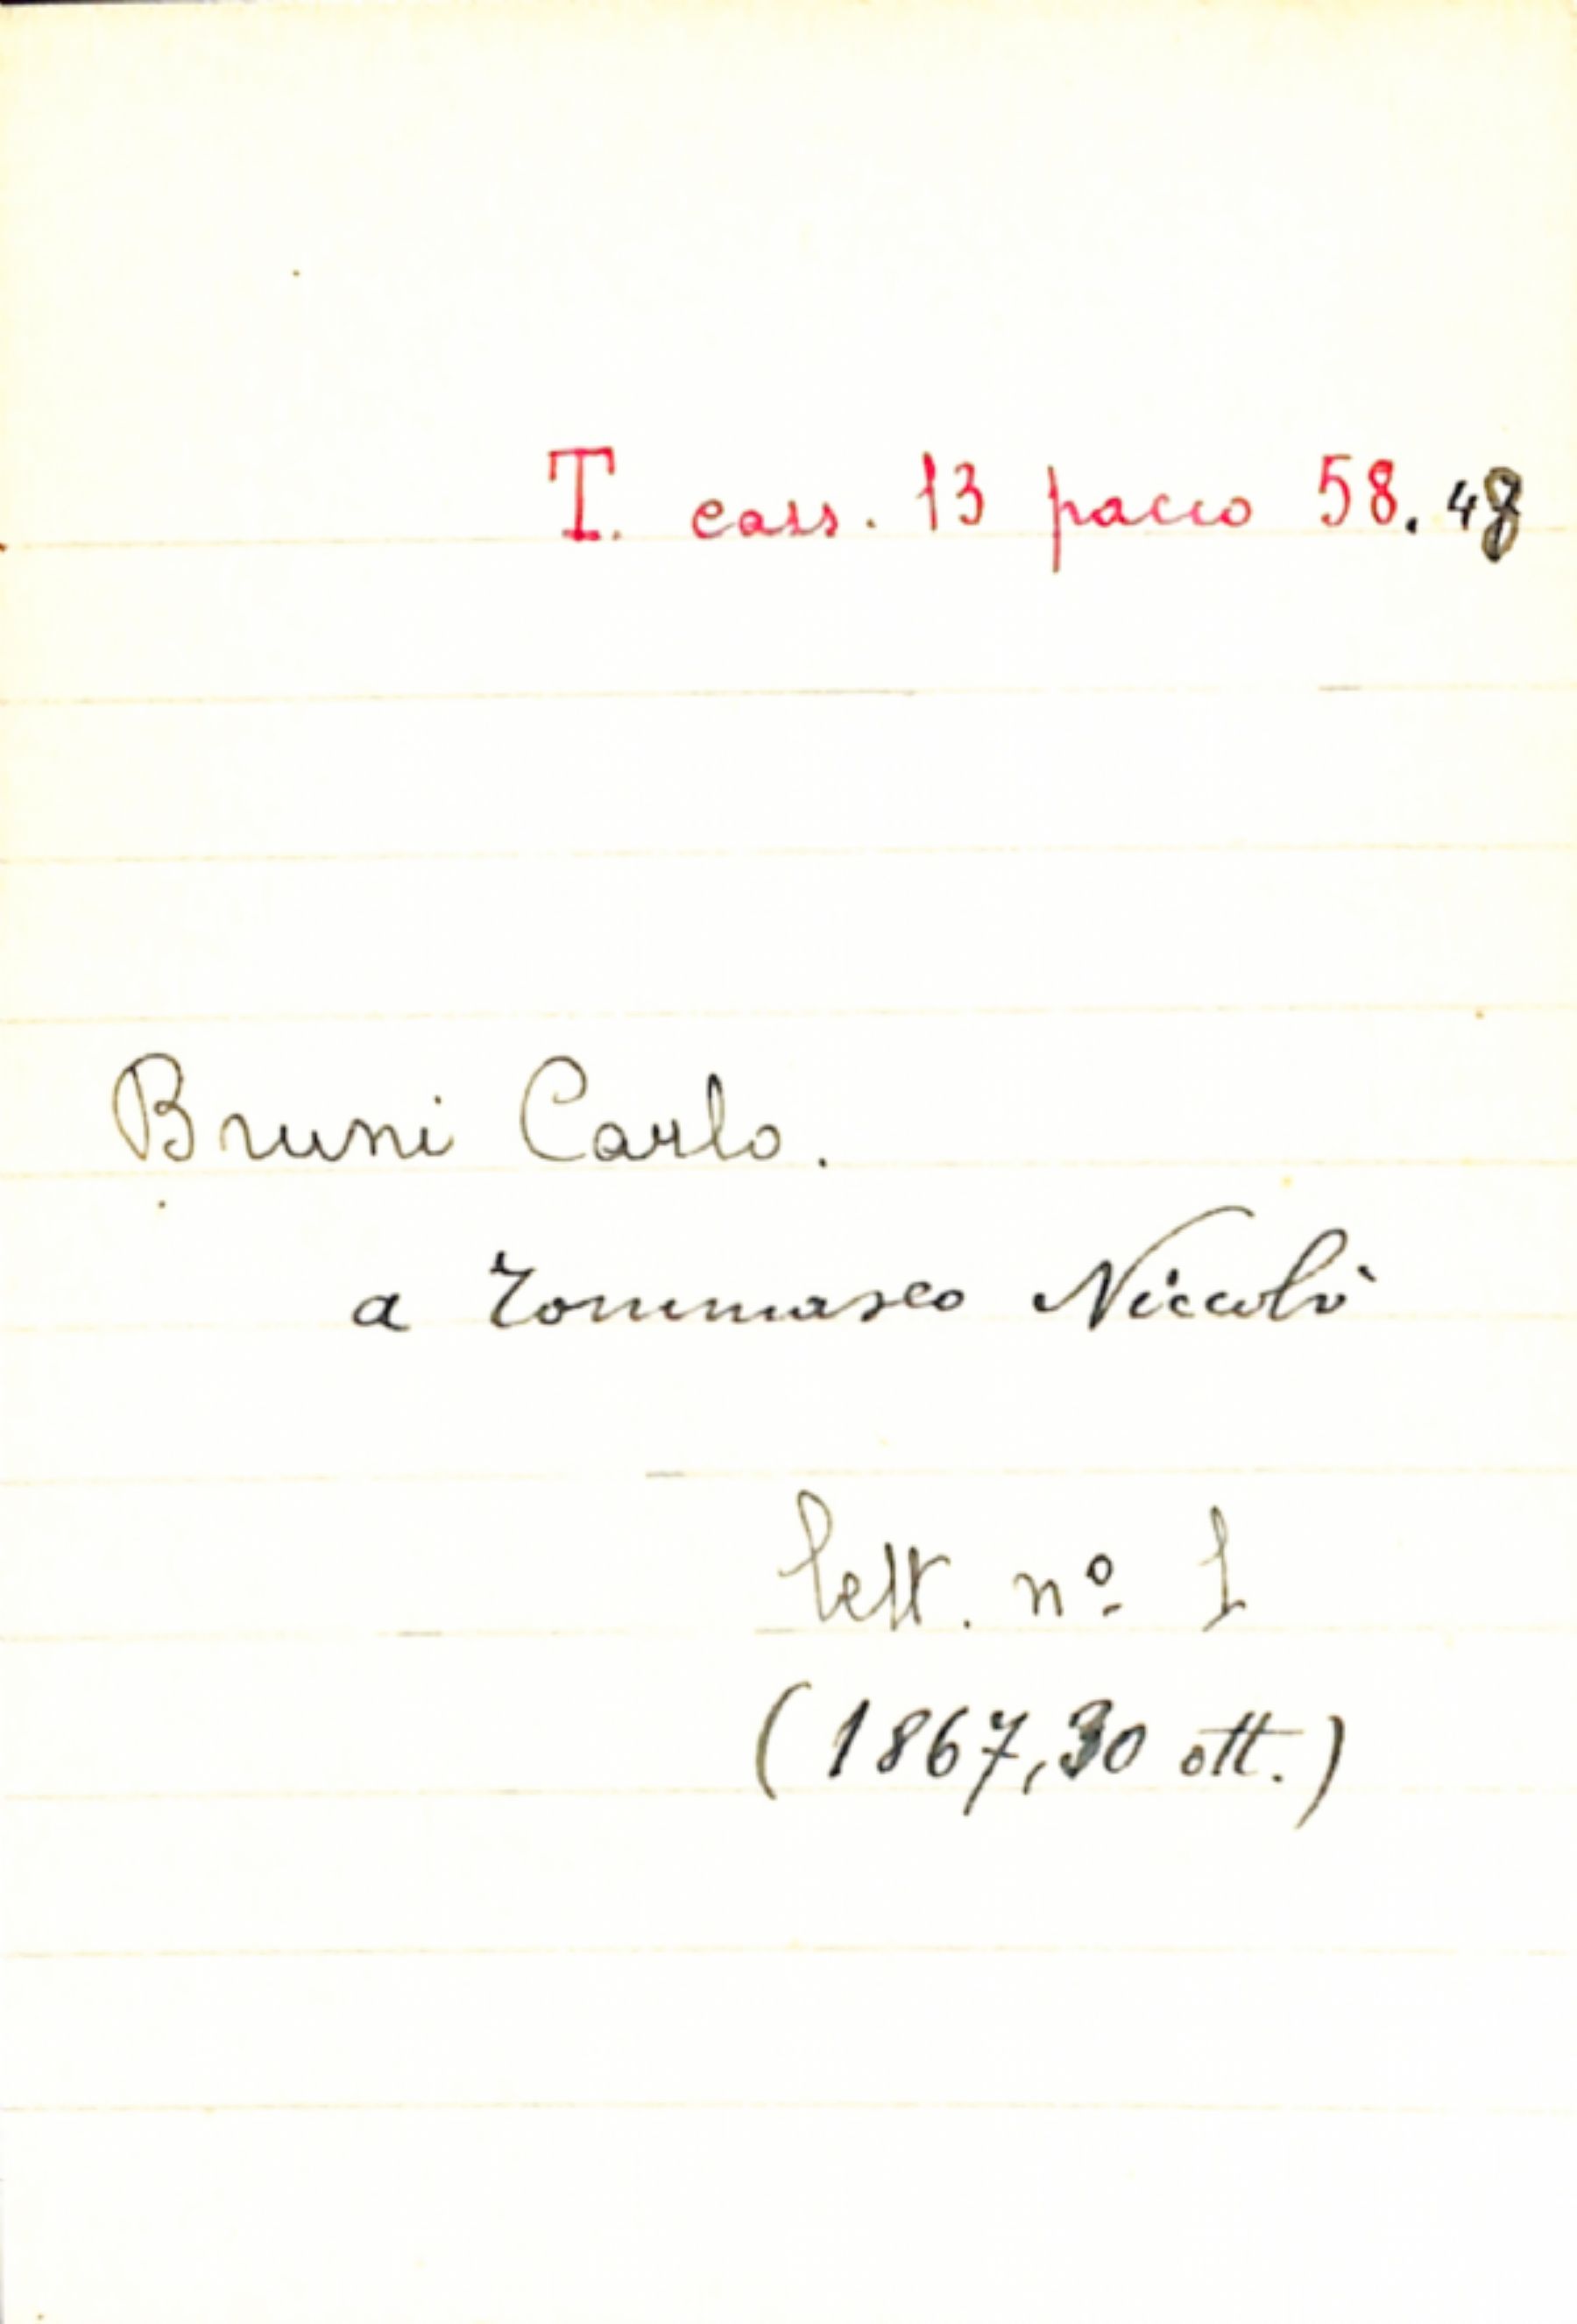 T. cass. 13 pacco 58. 48
Bruni Carlo.
a Tommaseo Niccolò
lett. nº 1
(1867, 30 ott.)